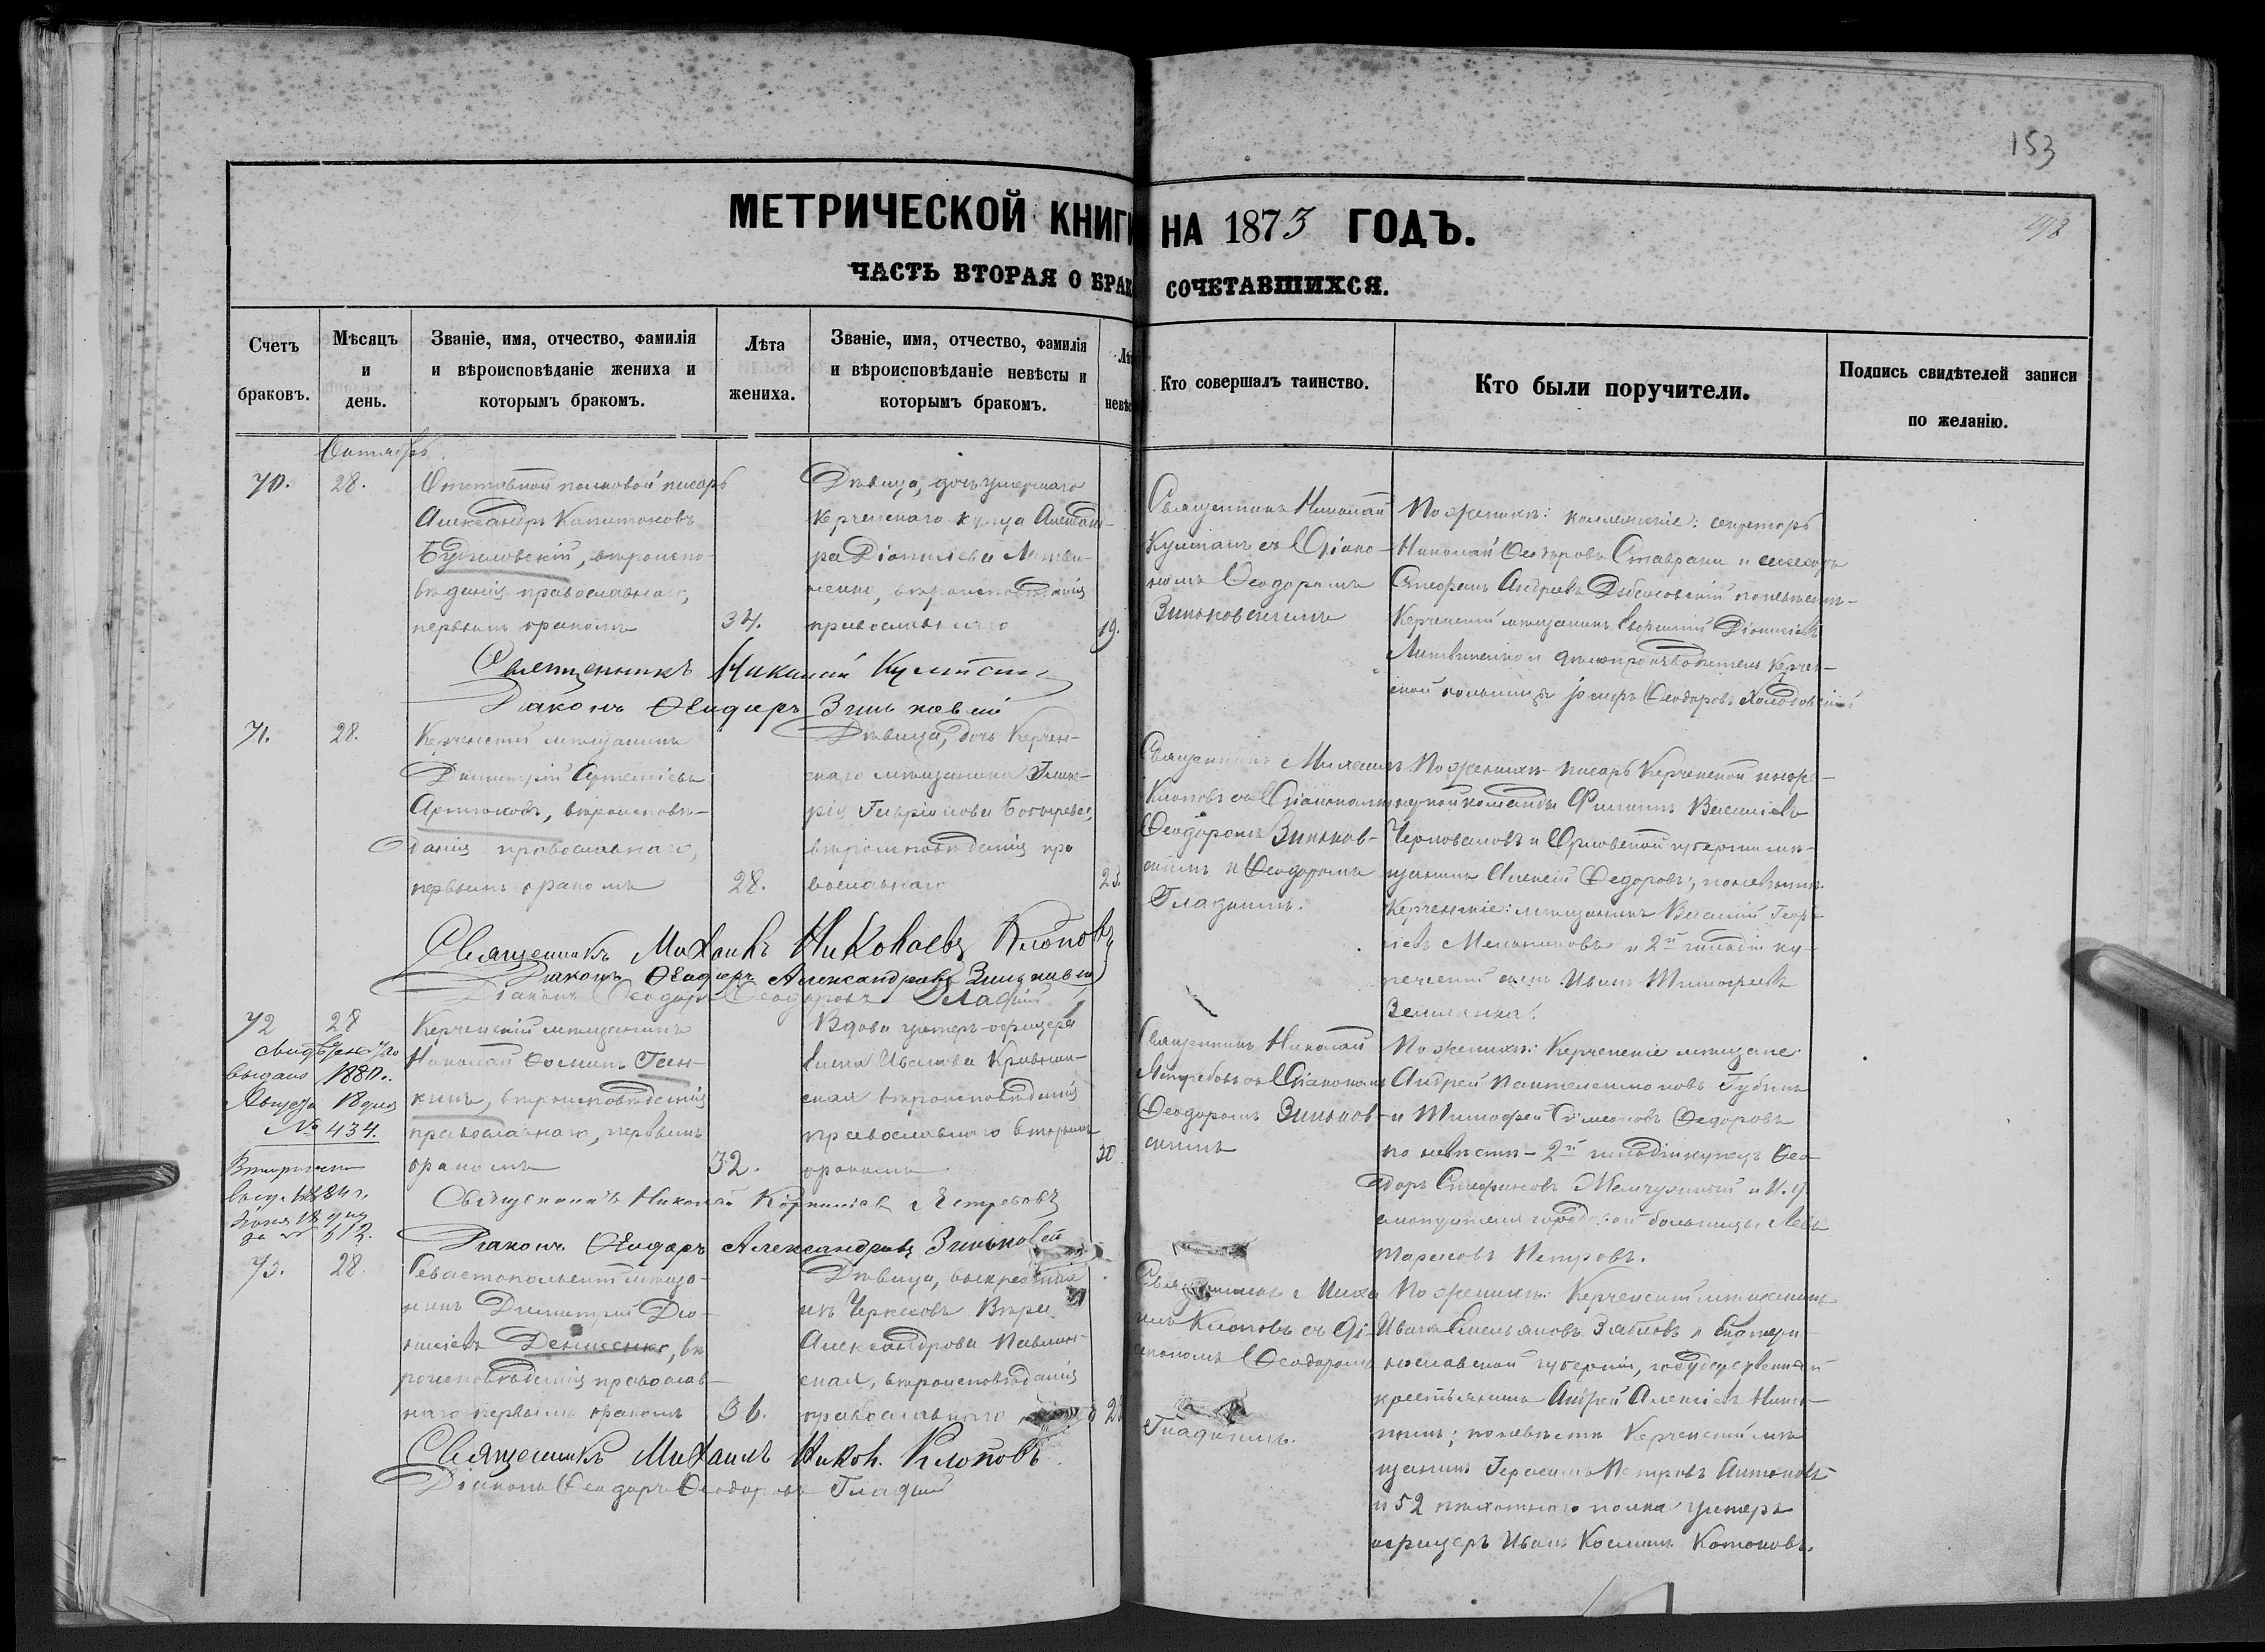 153
МЕТРИЧЕСКОЙ КНИГИ НА 1873 ГОДЪ.
ЧАСТЬ ВТОРАЯ О БРАК СОЧЕТАВШИХСЯ.
Счетъ браковъ.
Мѣсяцъ и день.
Званіе, имя, отчество, фамилія
и вѣроисповѣданіе жениха и
которымъ бракомъ.
Лѣта
жениха.
Званіе, имя, отчество, фамилія
и вѣроисповѣданіе невѣсты и
которымъ бракомъ.
Кто совершалъ таинство.
Кто были поручители.
Подпись свидѣтелей записи
по желанію.
Октябрь.
70.
28.
Отставной полковой писарь
Александръ Капитоновъ
Будиловскій, вѣроиспо-
вѣданія православнаго,
первымъ бракомъ
34.
Дѣвица, дочь умершаго
Керченскаго купца Александ-
ра Діонисіева Литви-
ненко, вѣроисповѣданія
православнаго
19.
Священникъ Николай
съ Діако-
номъ Ѳеодоромъ
Зиньковскимъ
По женихѣ: коллежскіе: секретарь
Николай Ѳеодоровъ Ставраки и
Стефанъ Андреевъ по невѣстѣ-
Керченскій мѣщанинъ Діонисіевъ
Литвиненко и дѣлопроизводитель Керчен-
ской больницы Іосифъ Ѳеодоровъ
Священникъ Николай
Діаконъ Ѳеодоръ Зиньковскій
71.
28.
Керченскій мѣщанинъ
Димитрій
вѣроисповѣ-
данія православнаго,
первымъ бракомъ
28.
Дѣвица, дочь Керчен-
скаго мѣщанина Глике-
рія Гавріилова
вѣроисповѣданія пра
вославнаго
Священникъ Михаилъ
Клоповъ съ Діаконами
Ѳеодоромъ Зиньков-
скимъ и Ѳеодоромъ
Гладкимъ.
По женихѣ- писарь Керченской
команды Филиппъ Василіевъ
и Орловской губерніи мѣ-
щанинъ Алексѣй Ѳедоровъ; по невѣстѣ
Керченскіе: мѣщанинъ Василій Геор-
гіевъ Мельниковъ и 2й гильдіи ку-
печескій сынъ Иванъ Тимофеевъ
Землянка.
Священникъ Михаилъ Николаевъ Клоповъ
Діаконъ Ѳеодоръ Александровъ Зиньковскій
Діаконъ Ѳеодоръ Ѳеодоровъ Гладкій
72
28
выдано 1880.
Августа 18 дня
№ 434.
612.
Керченскій мѣщанинъ
Николай Ѳоминъ Ген-
кинъ, вѣроисповѣданія
православнаго, первымъ
бракомъ
32.
Вдова унтеръ-офицера
Елена Иванова
вѣроисповѣданія
православнаго вторымъ
бракомъ
30
Священникъ Николай
Ястребовъ съ Діакономъ
Ѳеодоромъ Зиньков-
скимъ
По женихѣ: Керченскіе мѣщане
Андрей Пантелеимоновъ Губинъ
и Тимофей Симеоновъ Ѳедоровъ
по невѣстѣ- 2й гильдіи купецъ Ѳео-
доръ Стефановъ и И. д.
смотрителя городской больницы Левъ
Тарасовъ Петровъ.
Священникъ Николай Корниліевъ Ястребовъ
Діаконъ Ѳеодоръ Александровъ Зиньковскій
73.
28.
Севастопольскій мѣща-
нинъ Димитрій Діо-
нисіевъ Денисенко, вѣ
роисповѣданія православ-
наго первымъ бракомъ
36.
Дѣвица,
изъ Черкесовъ Вѣра
Александрова Павлов-
ская, вѣроисповѣданія
православнаго
Священникъ Миха
илъ Клоповъ съ Ді-
акономъ Ѳеодоромъ
Гладкимъ.
По женихѣ: Керченскій мѣщанинъ
Иванъ Емельяновъ и Екатери-
нославской губерніи, государственный
крестьянинъ Андрей Алексіевъ
по невѣстѣ Керченскій мѣ
щанинъ Герасимъ Петровъ Антоновъ
и 52 пѣхотнаго полка унтеръ
офицеръ Иванъ Косминъ
Священникъ Михаилъ Никол. Клоповъ
Діаконъ Ѳеодоръ Ѳеодоровъ Гладкій